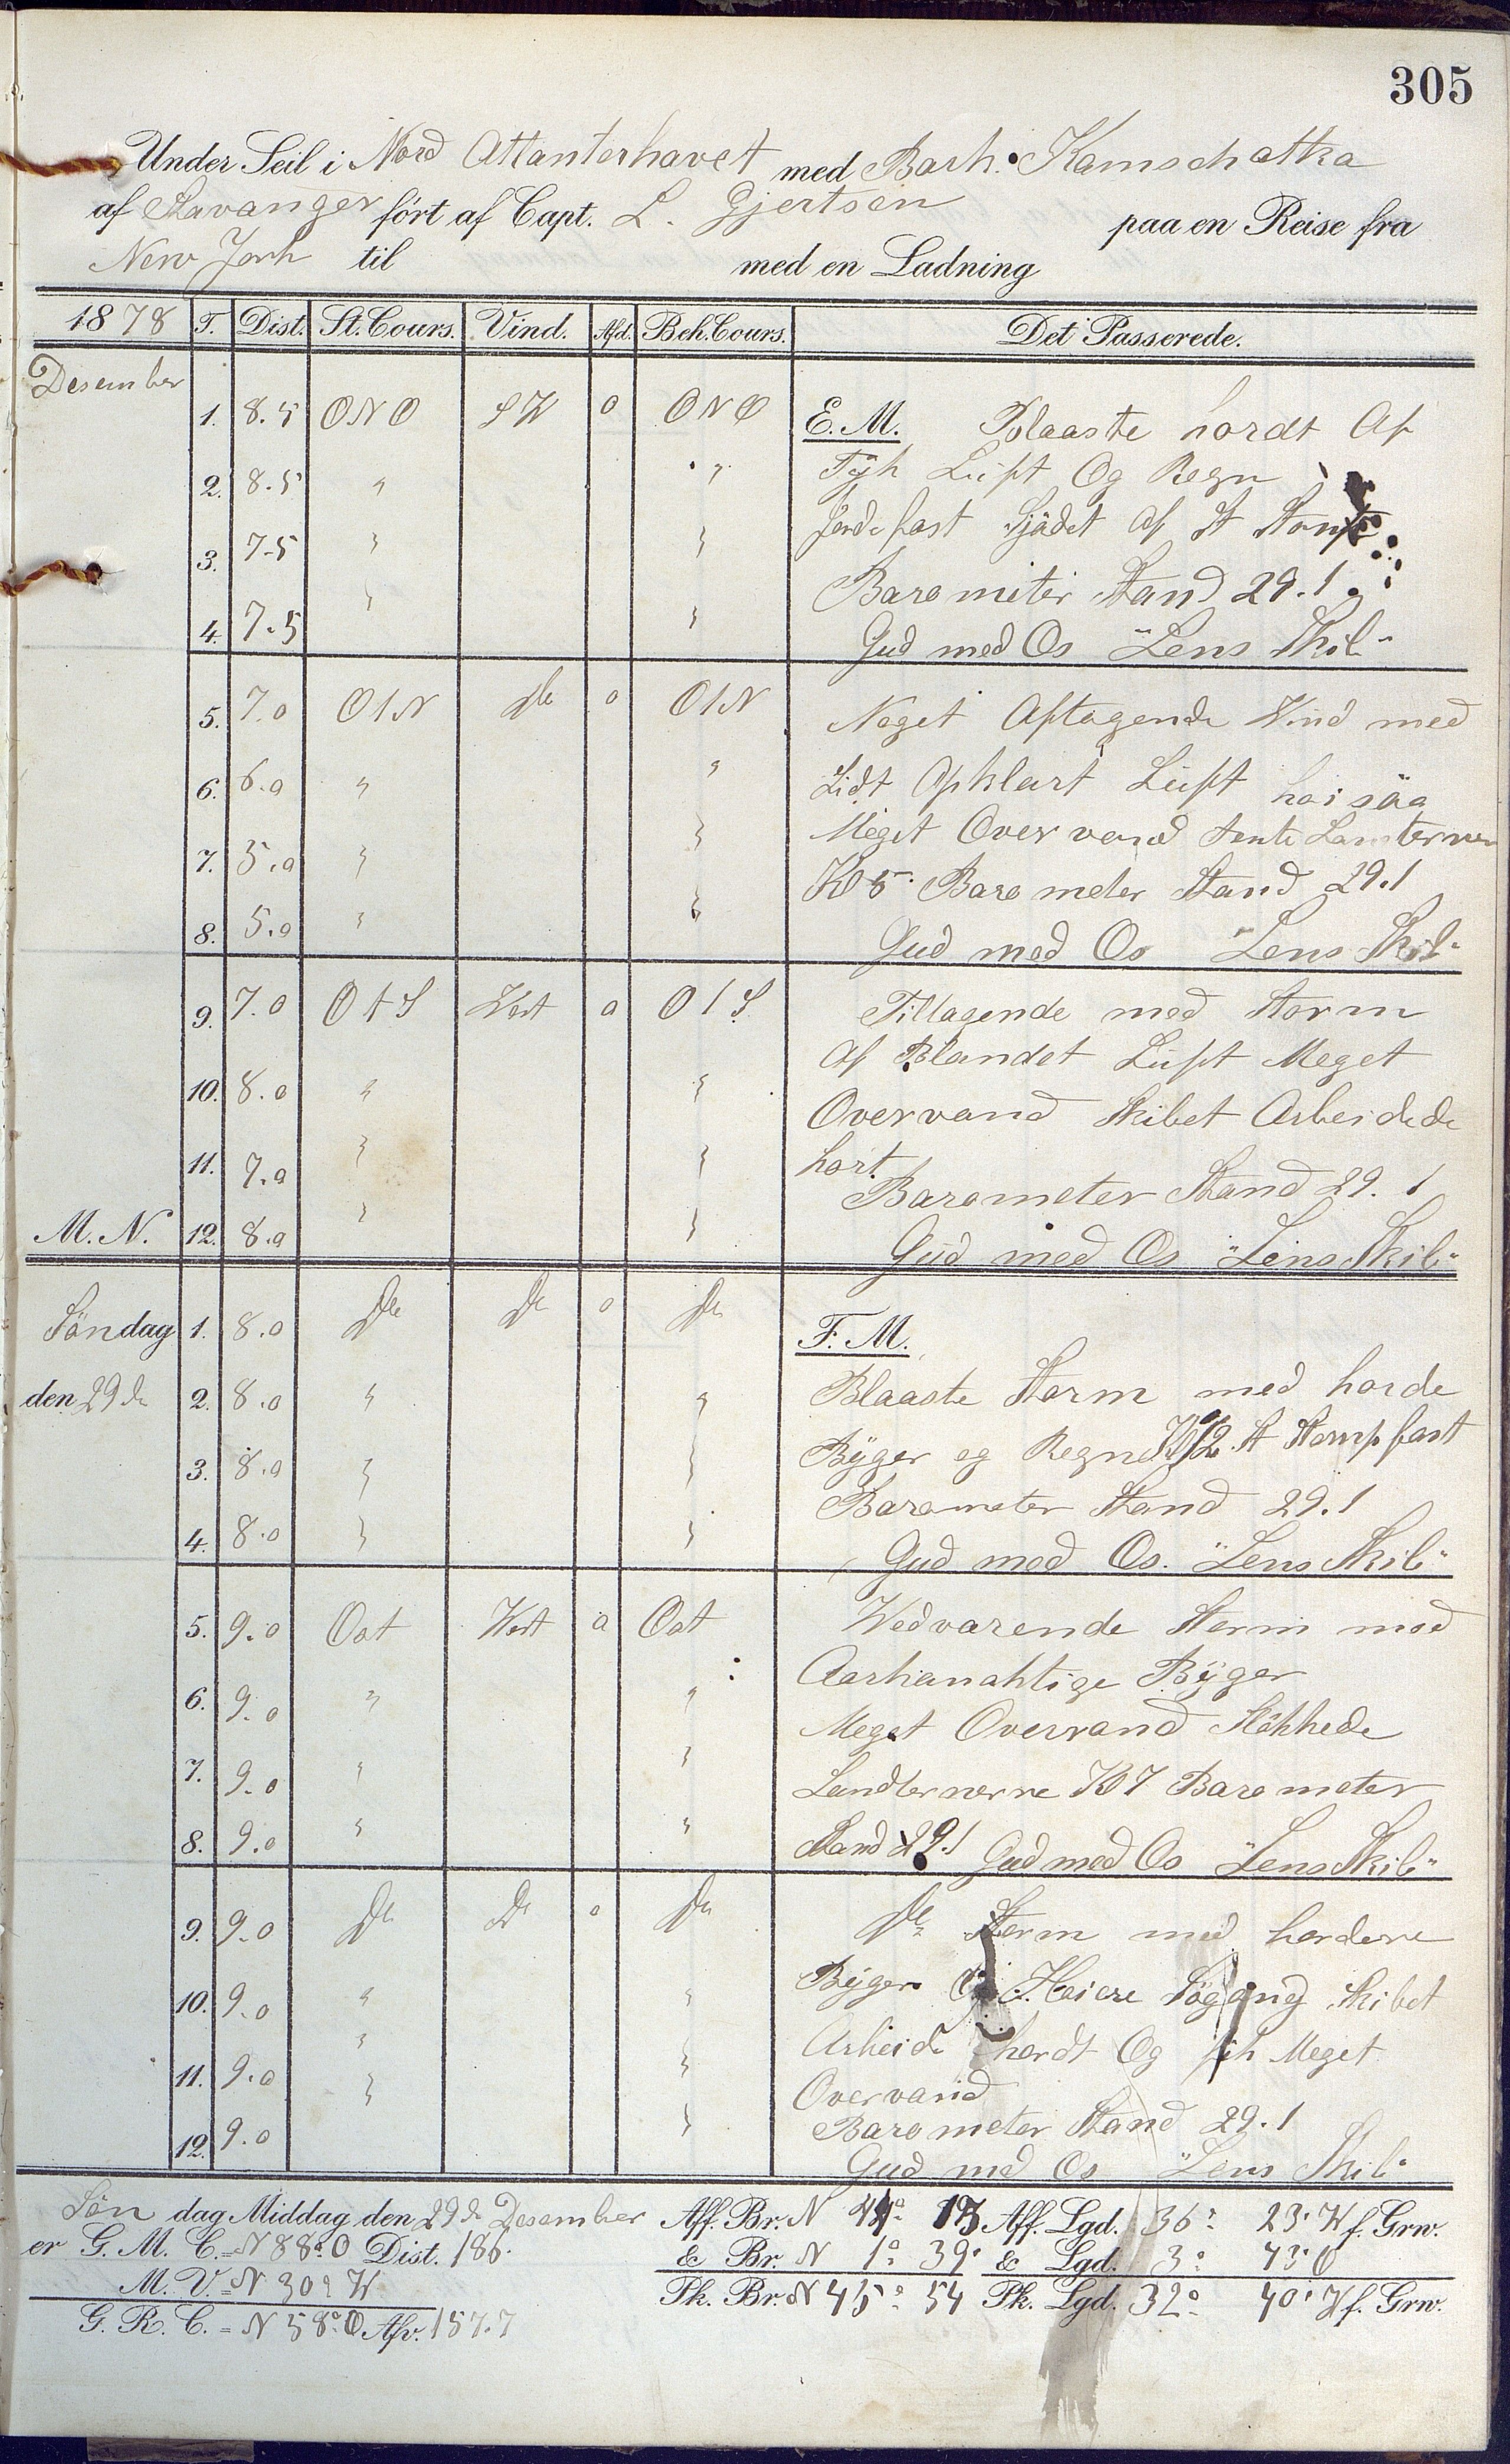 305
Under Seil i Nord Attanterhavet med Barh. Kamschatka
af Stavanger ført af Capt. L. Gjertsen paa en Reise fra
New Jorh til med en Ladning
1878 T. Dist. St. Cours. Vind. Afd. Beh. Cours. Det Passerede.
Desember
1. 8.5 ONO SW 0 ONO E.M. Blaaste hordt Af
2. 8.5 " " Tyk Luft Og Regn
3. 7.5 " " fast af St
Barometer Stand 29.1
4. 7.5 " " Gud med Os "Lens Skib"
5. 7.0 O t N Do 0 O t N Noget Aftagende Wind med
6. 6.0 " " Lidt Opklart Luft hoi säg
Meget Overvand tente Lanternen
7. 5.0 " " Kl 5. Barometer Stand 29.1
8. 5.0 " " Gud med Os "Lens Skib"
9. 7.0 O t S West 0 O t S Tiltagende med Storm
Af Blandet Luft Meget
10. 8.0 " " Overvand Skibet Arbeidede
11. 7.0 " " hort.
Barometer Stand 29.1
M.N. 12. 8.0 " " Gud med Os "Lens Skib"
Söndag 1. 8.0 Do Do 0 Do F.M.
den 29de 2. 8.0 " " Blaaste Storm med horde
3. 8.0 " " Byger og Regn Kl 2. St Stomp fast
Barometer Stand 29.1
4. 8.0 " " Gud med Os. "Lens Skib"
5. 9.0 Ost West 0 Ost Wedvarende Storm med
Aarkanahtige Byger
6. 9.0 " " Meget Overvand Slökkede
7. 9.0 " " Landternerne Kl 7 Barometer
8. 9.0 " " Stand 29.1 Gud med Os "Lens Skib"
9. 9.0 Do Do 0 Do Do Storm med hordere
10. 9.0 " " Byger Og Hoiere Sögang Skibet
Arbeide hordt Og fik Meget
11. 9.0 " " Overvand
Barometer Stand 29.1
12. 9.0 " Gud med Os "Lens Skib"
Sön dag Middag den 29de Desember Aff. Br. N 44° 15 Aff. Lgd. 36° 23' W f. Grw.
er G. M. C. = N 88° O Dist. 186. & Br. N 1° 39' & Lgd. 3° 43' O
M. V. = N 30° W Pk. Br. N 45° 54 Pk. Lgd. 32° 40' W f. Grw.
G. R. C. = N 58° O Afv. 157.7